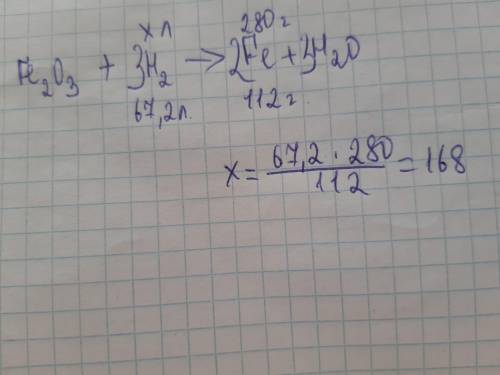 x л 280 г
Fe₂O₃ + 3H₂ → 2Fe + 3H₂O
67,2 л. 112 г.
x = 67,2 · 280 / 112 = 168